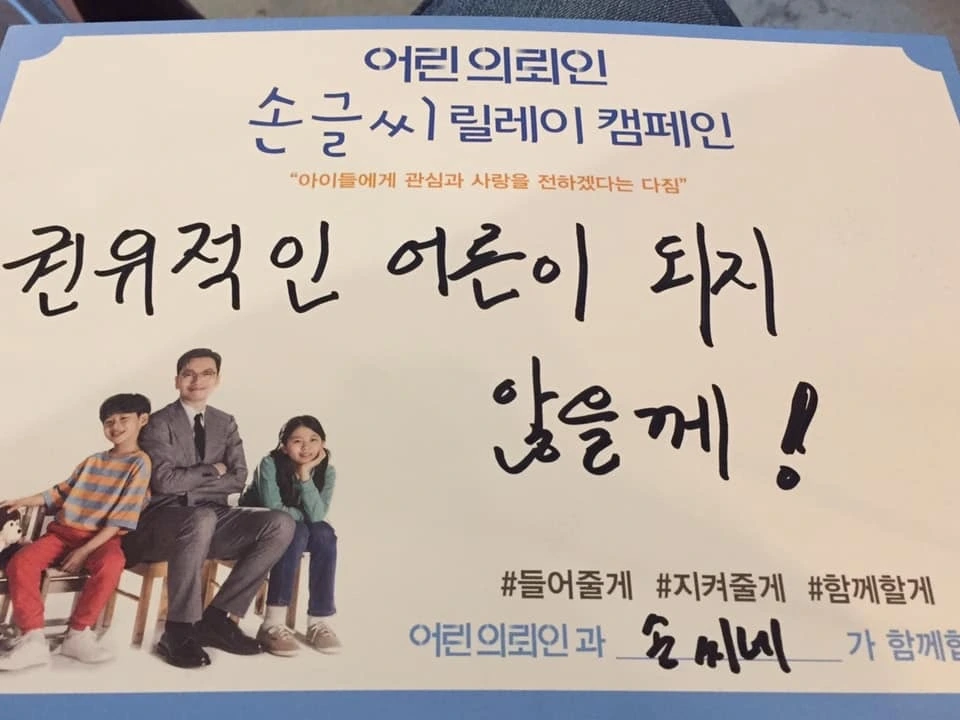 어린 의뢰인
손글씨 릴레이 캠페인
“아이들에게 관심과 사랑을 전하겠다는 다짐”
권유적인 어른이 되지
않을께!
#들어줄게 #지켜줄게 #함께할게
어린 의뢰인 과 손씨네 가 함께합